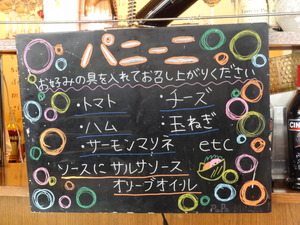 パニーニ
お好みの具を入れてお召し上がりください
・トマト ・チーズ
・ハム ・玉ねぎ
・サーモンマリネ etc
ソースに サルサソース
オリーブオイル